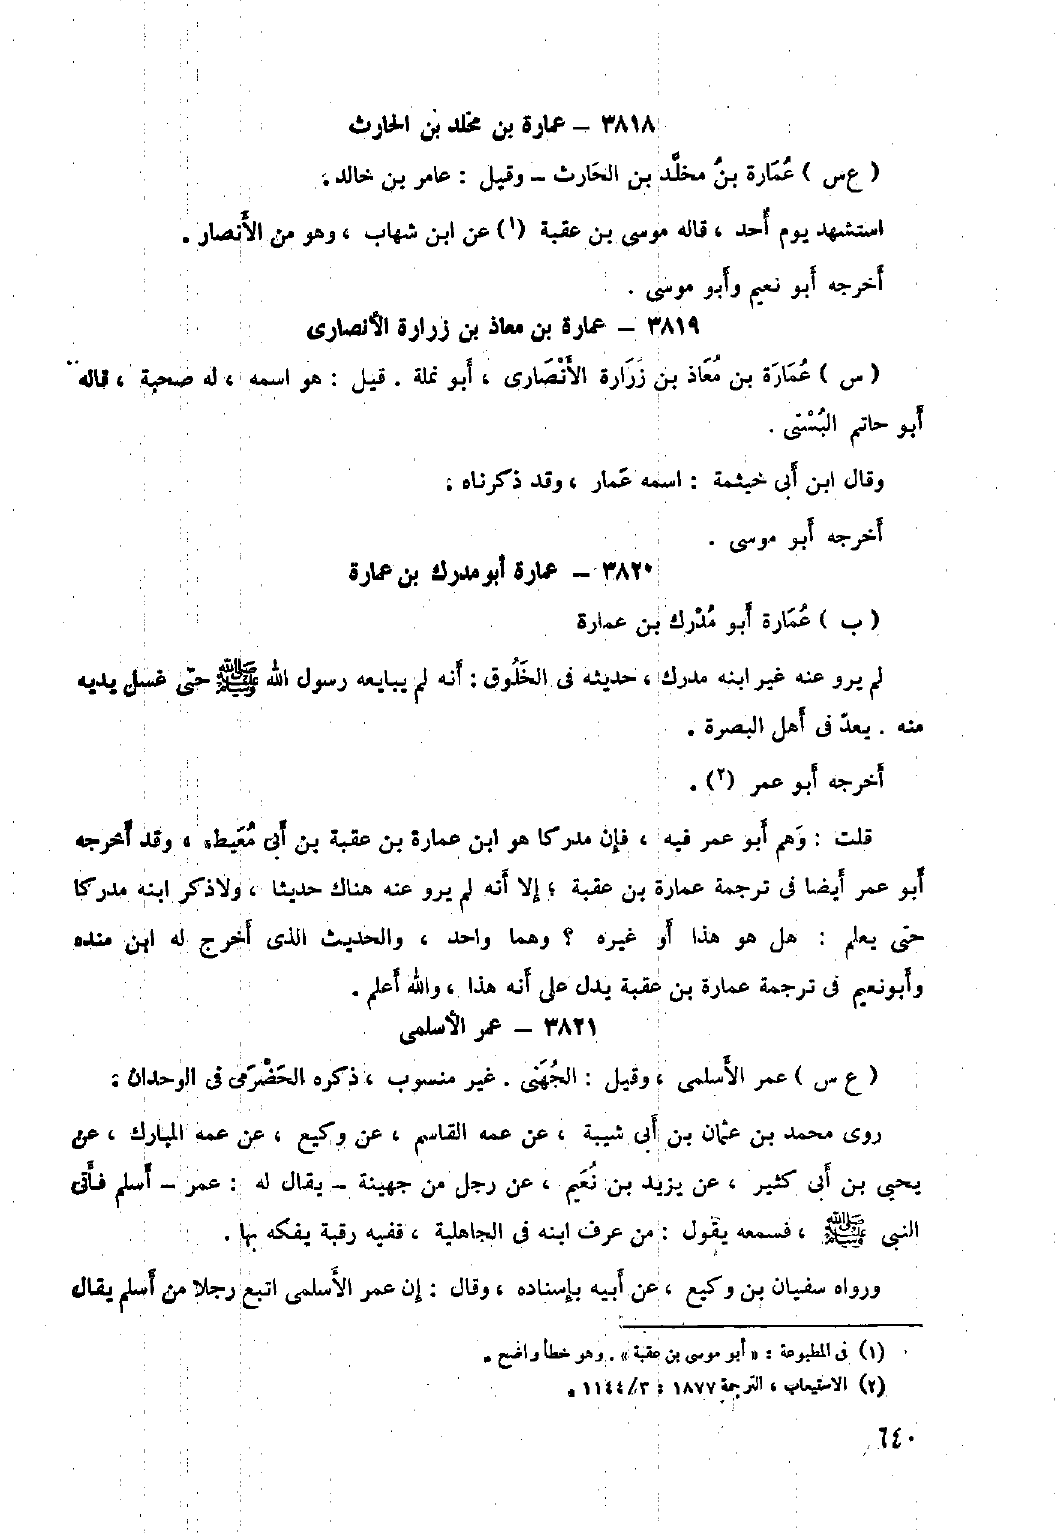 ٣٨١٨ – عمارة بن مخلد بن الحارث
( ع س ) عُمَارة بنُ مخلَّد بن الحَارث – وقيل : عامر بن خالد .
استشهد يوم أُحد ، قاله موسى بن عقبة (١) عن ابن شهاب ، وهو من الأَنصار .
أَخرجه أَبو نعيم وأَبو موسى .
٣٨١٩ – عمارة بن معاذ بن زرارة الأنصارى
( س ) عُمَارَة بن مُعَاذ بن زَرَارة الأَنْصَارى ، أَبو نملة . قيل : هو اسمه ، له صحبة ، قاله
أَبو حاتم البُسْتى .
وقال ابن أَبى خيثمة : اسمه عَمار ، وقد ذكرناه .
أَخرجه أَبو موسى .
٣٨٢٠ – عمارة أبو مدرك بن عمارة
( ب ) عُمَارة أَبو مُدْرك بن عمارة
لم يرو عنه غير ابنه مدرك ، حديثه فى الخَلُوق : أَنه لم يبايعه رسول الله ﷺ حتَّى غسل يديه
منه . يعدّ فى أَهل البصرة .
أَخرجه أَبو عمر (٢) .
قلت : وَهم أَبو عمر فيه ، فإن مدركا هو ابن عمارة بن عقبة بن أَبى مُعَيط ، وقد أَخرجه
أَبو عمر أَيضا فى ترجمة عمارة بن عقبة ؛ إلا أَنه لم يرو عنه هناك حديثا ، ولا ذكر ابنه مدركا
حتى يعلم : هل هو هذا أَو غيره ؟ وهما واحد ، والحديث الذى أَخرج له ابن منده
وأَبو نعيم فى ترجمة عمارة بن عقبة يدل على أَنه هذا ، والله أَعلم .
٣٨٢١ – عمر الأسلمى
( ع س ) عمر الأَسلمى ، وقيل : الجُهَنى . غير منسوب ، ذكره الحَضْرَمى فى الوحدان .
روى محمد بن عثمان بن أَبى شيبة ، عن عمه القاسم ، عن وكيع ، عن عمه المبارك ، عن
يحيى بن أَبى كثير ، عن يزيد بن نُعَيم ، عن رجل من جهينة – يقال له : عمر – أَسلم فأَتى
النبى ﷺ ، فسمعه يقول : من عرف ابنه فى الجاهلية ، ففيه رقبة يفكه بها .
ورواه سفيان بن وكيع ، عن أَبيه بإسناده ، وقال : إن عمر الأَسلمى اتبع رجلا من أَسلم يقال
(١) فى المطبوعة : « أبو موسى بن عقبة » . وهو خطأ واضح .
(٢) الاستيعاب ، الترجمة ١٨٧٧ : ٣/١١٤٤ .
٦٤٠